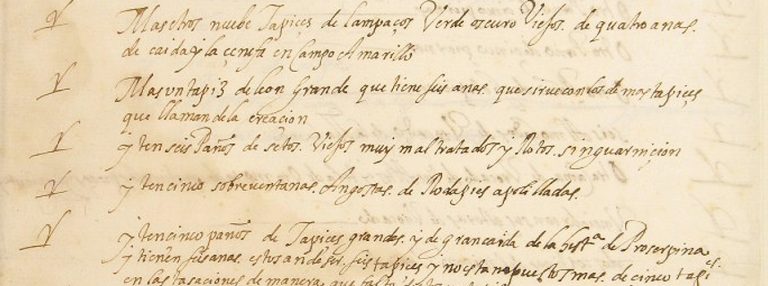 Mas otros nuebe Tapices de Lampaços Verde oscuro Viejos. de quatro anas.
de caida y la çenefa en Campo Amarillo
Mas un tapiz de leon Grande que tiene seis anas. que sirue con los demas tapiçes
que llaman de la creacion
yten seis Paños de setos. Viejos muy mal tratados y Rotos. sin guarniçion
yten cinco sobreventanas. Angostas. de Rodapies apolilladas.
yten cinco paños de Tapices grandes. y de gran caida de la hist.ª de Proserpina
y tienen seis anas. estos an de ser. seis tapices y no estan puestos mas. de cinco tapi ces.
en las tasaciones de manera que